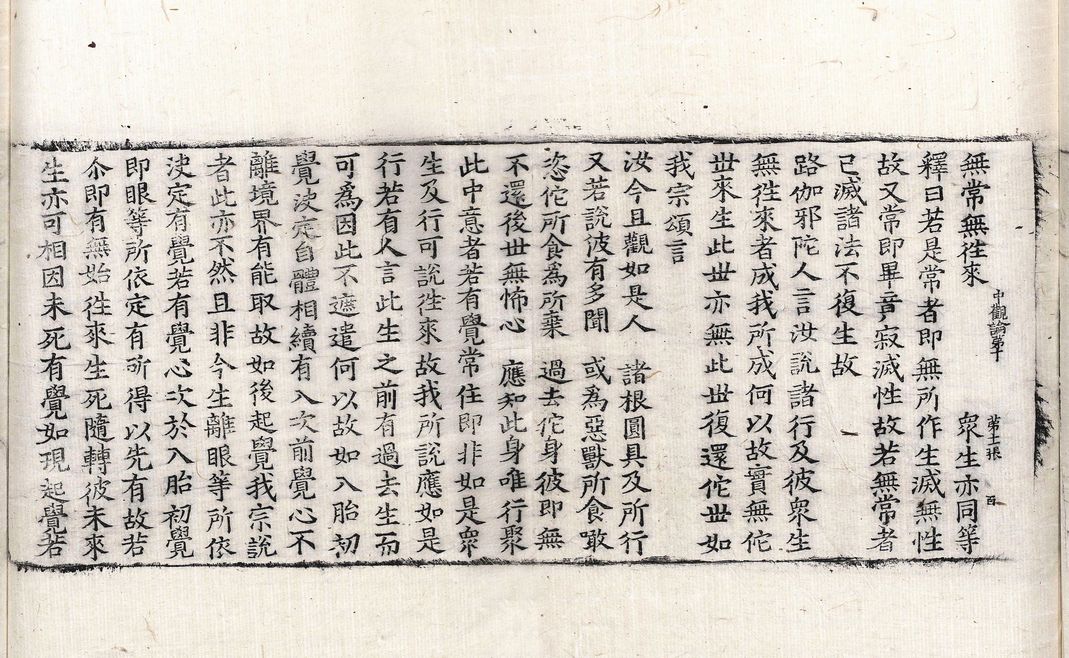 無常無徃來　衆生亦同等
中觀論第十　第十一張　百
釋曰若是常者即無所作生滅無性
故又常即畢竟寂滅性故若無常者
已滅諸法不復生故
路伽邪陀人言汝說諸行及彼衆生
無徃來者成我所成何以故實無佗
世來生此世亦無此世復還佗世如
我宗頌言
汝今且觀如是人　諸根圓具及所行
又若說彼有多聞　或爲惡獸所食噉
恣佗所食爲所棄　過去佗身彼即無
不還後世無怖心　應知此身唯行聚
此中意者若有覺常住即非如是衆
生及行可說徃來故我所說應如是
行若有人言此生之前有過去生而
可爲因此不遮遣何以故如入胎初
覺決定自體相續有入次前覺心不
離境界有能取故如後起覺我宗說
者此亦不然且非今生離眼等所依
決定有覺若有覺心次於入胎初覺
即眼等所依定有所得以先有故若
尒即有無始徃來生死隨轉彼未來
生亦可相因未死有覺如現起覺若